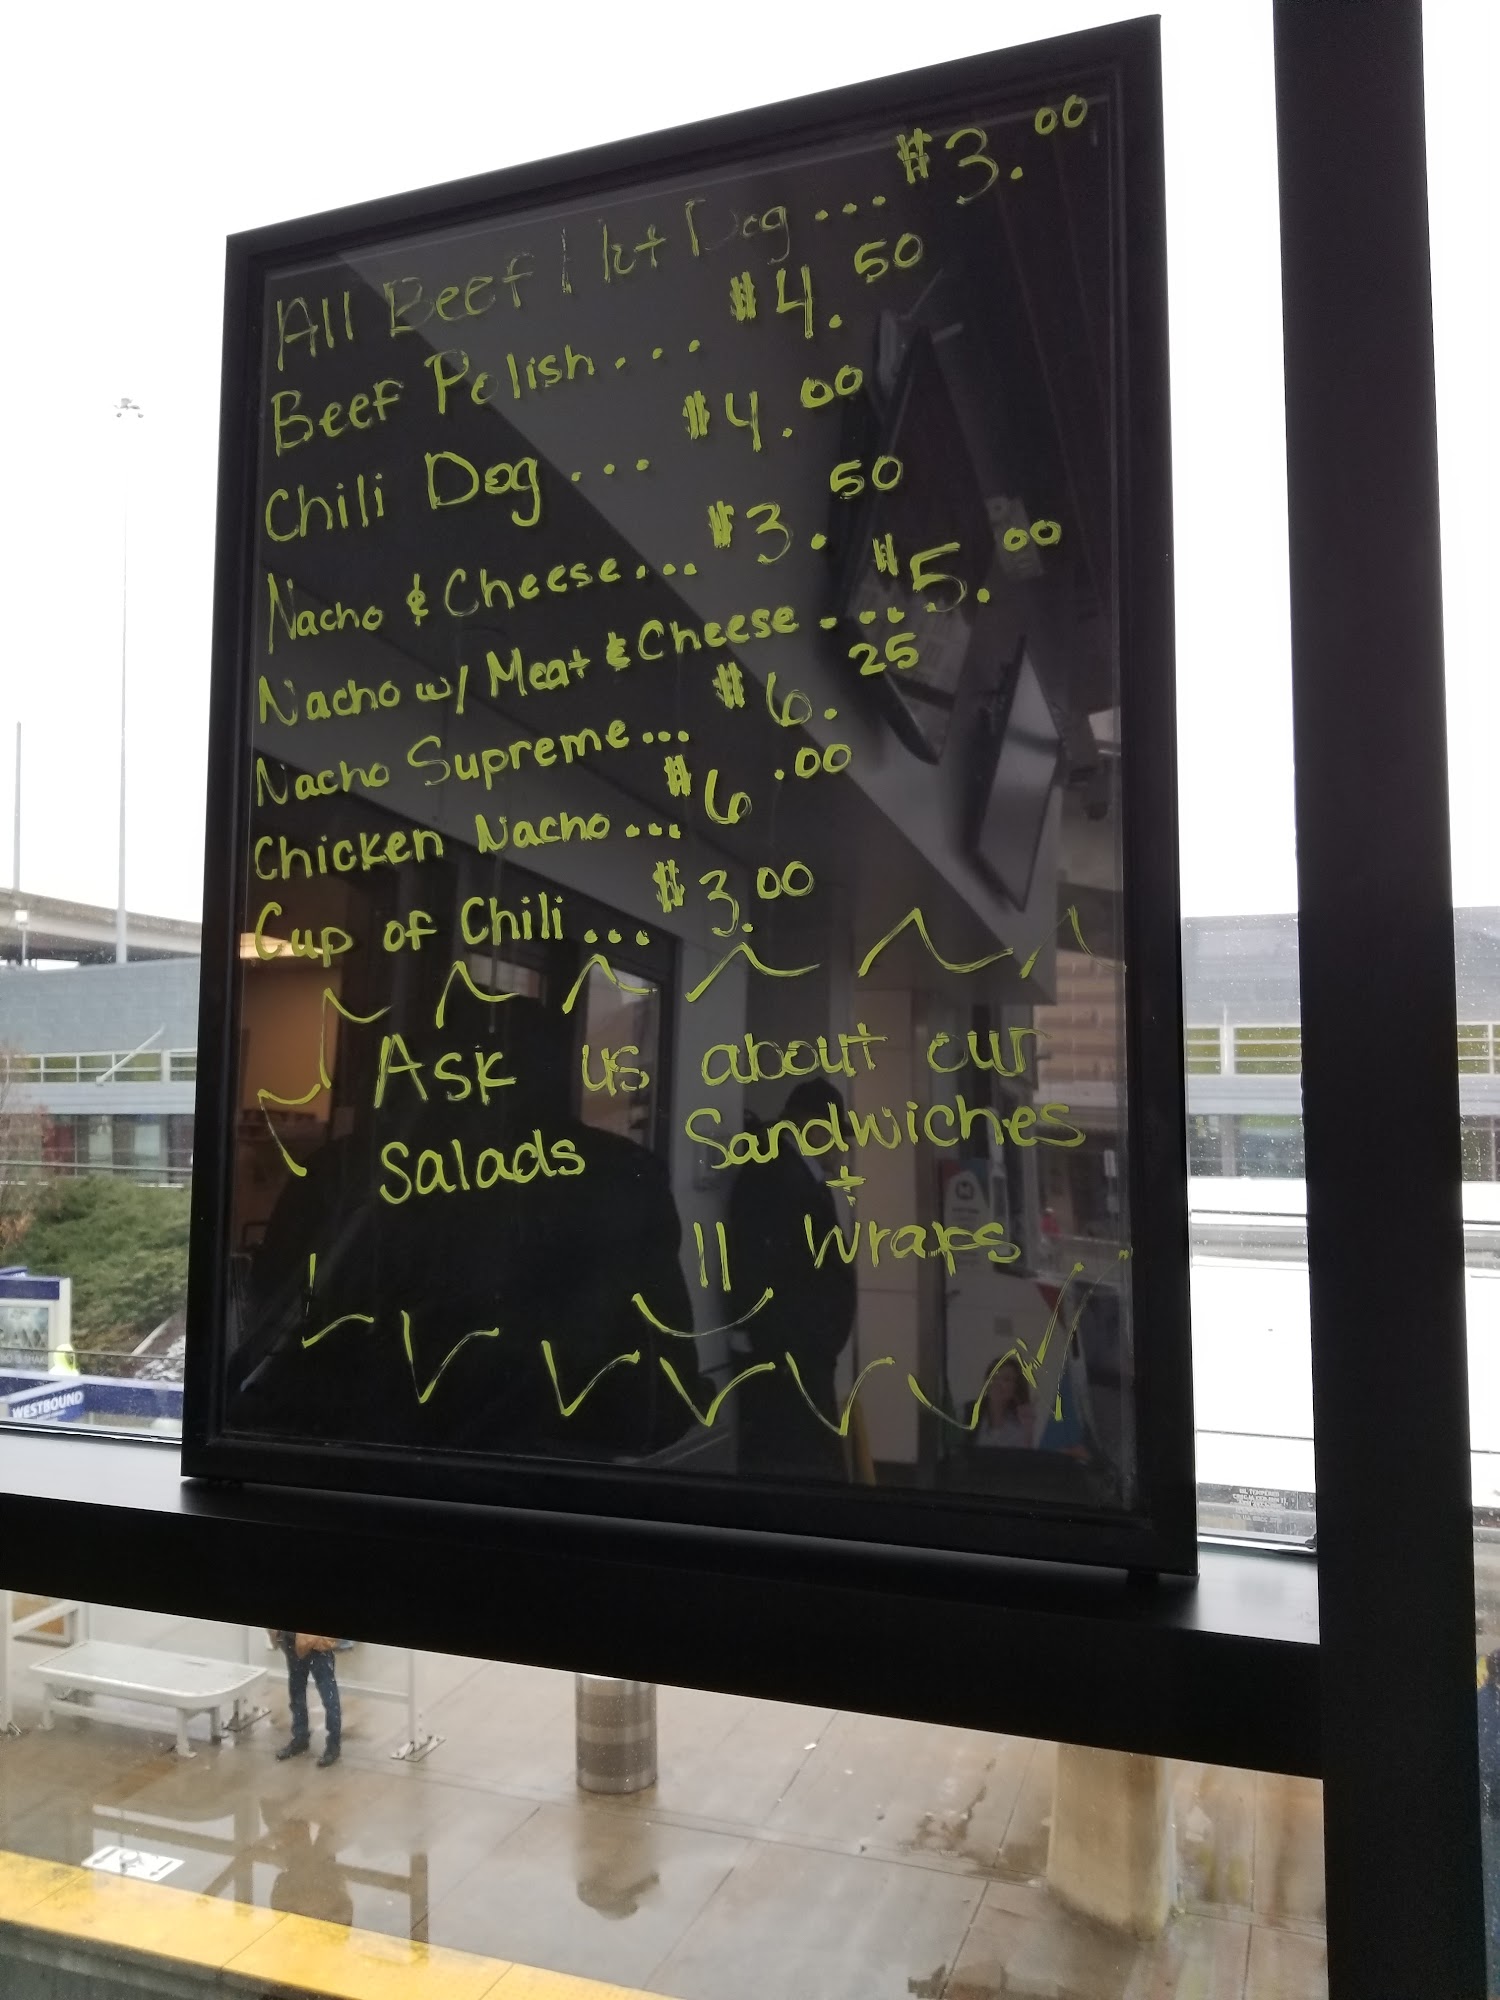 All Beef Hot Dog...$3.00
Beef Polish...$4.50
Chili Dog...$4.00
Nacho & Cheese...$3.50
Nacho w/ Meat & Cheese....$5.00
Nacho Supreme...$6.25
Chicken Nacho...$6.00
Cup of Chili...$3.00
Ask us about our
Salads Sandwiches
+
Wraps
WESTBOUND